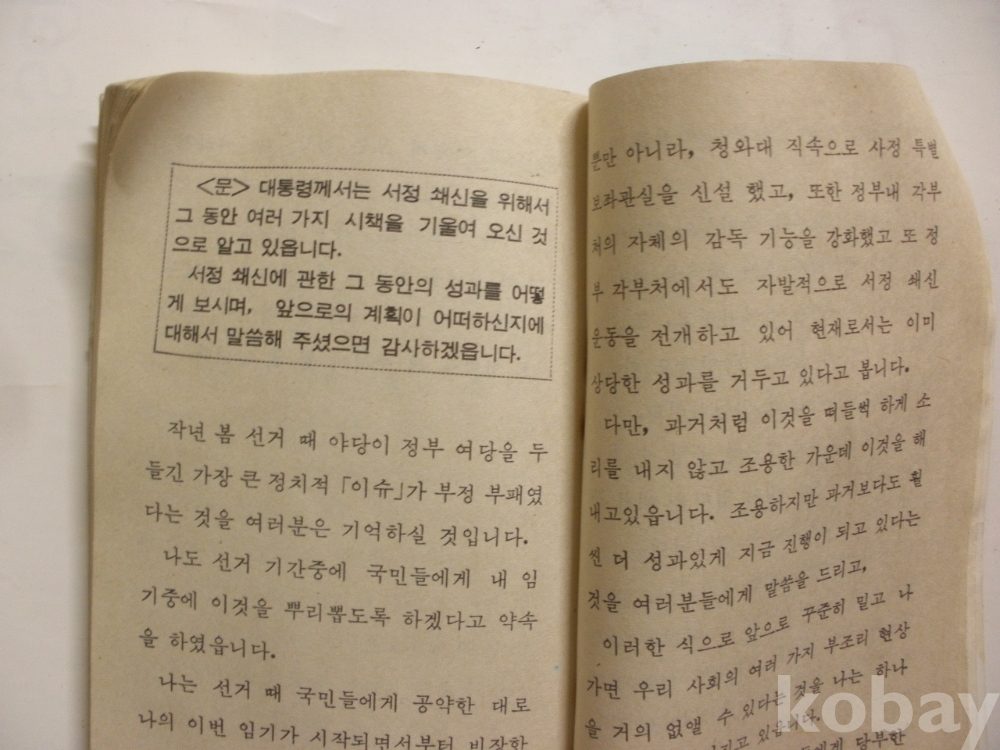 <문> 대통령께서는 서정 쇄신을 위해서
그 동안 여러 가지 시책을 기울여 오신 것
으로 알고 있읍니다.
서정 쇄신에 관한 그 동안의 성과를 어떻
게 보시며, 앞으로의 계획이 어떠하신지에
대해서 말씀해 주셨으면 감사하겠읍니다.
작년 봄 선거 때 야당이 정부 여당을 두
들긴 가장 큰 정치적 「이슈」가 부정 부패였
다는 것을 여러분은 기억하실 것입니다.
나도 선거 기간중에 국민들에게 내 임
기중에 이것을 뿌리뽑도록 하겠다고 약속
을 하였읍니다.
나는 선거 때 국민들에게 공약한 대로
나의 이번 임기가 시작되면서부터 비장한
뿐만 아니라, 청와대 직속으로 사정 특별
보좌관실을 신설 했고, 또한 정부내 각부
처의 자체의 감독 기능을 강화했고 또 정
부 각부처에서도 자발적으로 서정 쇄신
운동을 전개하고 있어 현재로서는 이미
상당한 성과를 거두고 있다고 봅니다.
다만, 과거처럼 이것을 떠들썩 하게 소
리를 내지 않고 조용한 가운데 이것을 해
내고있읍니다. 조용하지만 과거보다도 훨
씬 더 성과있게 지금 진행이 되고 있다는
것을 여러분들에게 말씀을 드리고,
이러한 식으로 앞으로 꾸준히 밀고 나
가면 우리 사회의 여러 가지 부조리 현상
을 거의 없앨 수 있다는 것을 나는 하나
있읍니다.
에게 당부한
kobay